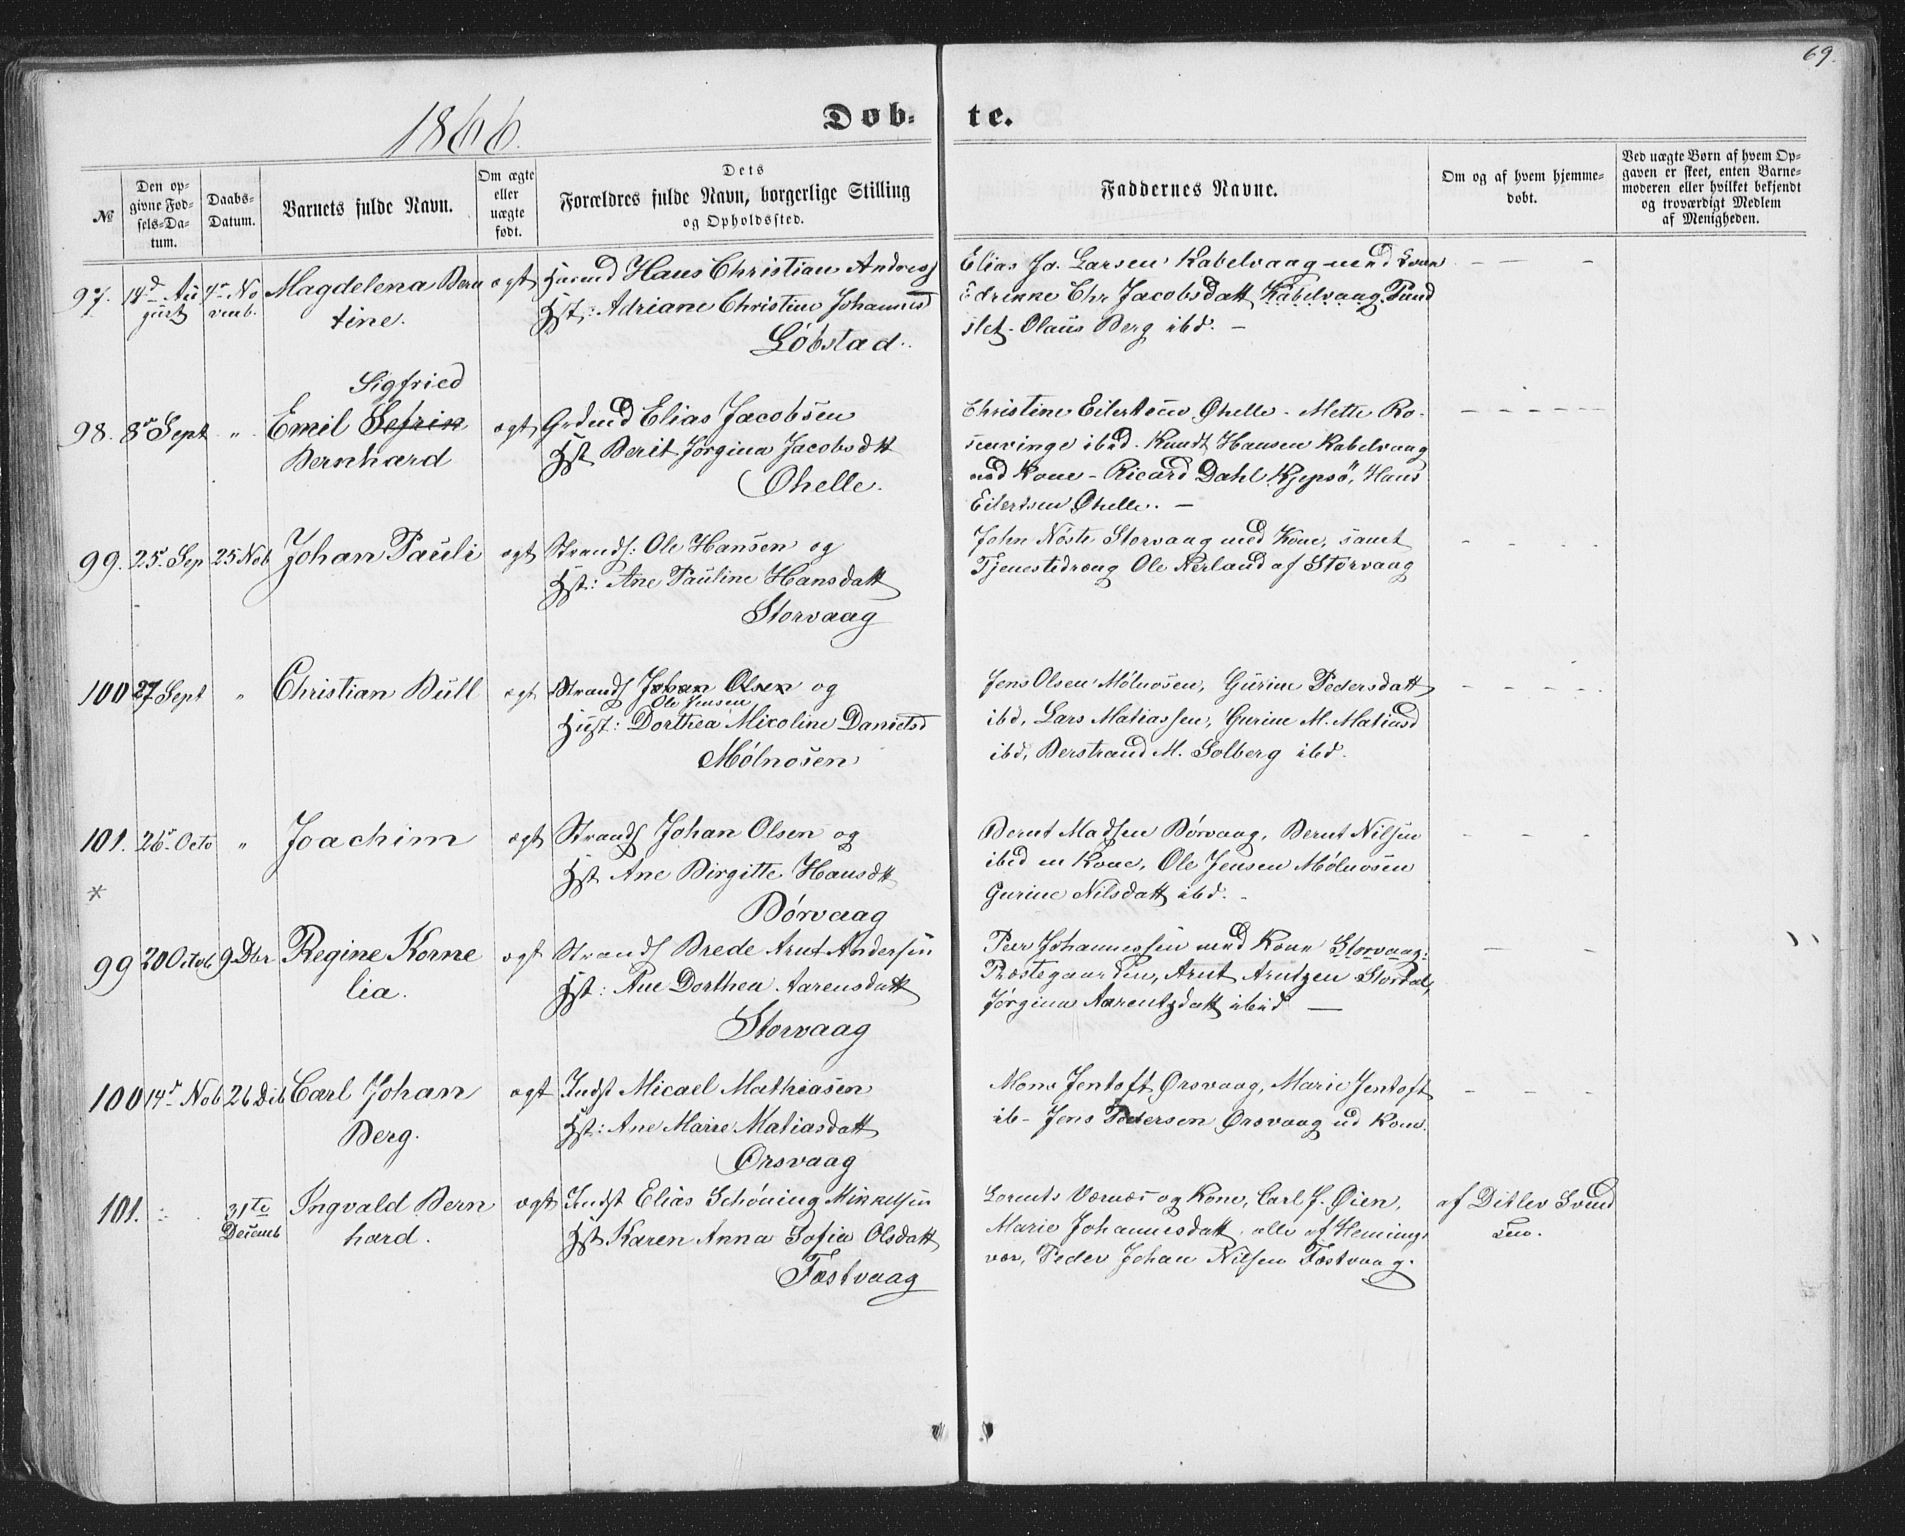 69.
1866.
Døb-
te.
№
Den op-
givne Fød-
sels-Da-
tum.
Daabs-
Datum.
Barnets fulde Navn.
Om ægte
eller
uægte
født.
Dets
Forældres fulde Navn, borgerlige Stilling
og Opholdssted.
Faddernes Navne.
Om og af hvem hjemme-
døbt.
Ved uægte Børn af hvem Op-
gaven er skeet, enten Barne-
moderen eller hvilket bekjendt
og troværdigt Medlem
af Menigheden.
97. 14d Au 4r No Magdelena Bern ægt Huusmd Hans Christian Andreas
gust vmb. tine. Hst: Adriane Christine Johannesd
Løbstad.
Elias Ja. Larsen Kabelvaag med Kone
Edrikke Chr Jacobsdatt Kabelvaag
Olaus Berg ibd. -
Sigfried
98. 8d Sept " Emil Sefrin ægt Grdmd Elias Jacobsen
Bernhard Hst Berit Jørgina Jacobsdtt
Ohelle.
Christine Eilertsen Øhelle - Mette Ro-
senvinge ibid. Knudt Hansen Kabelvaag
md Kone - Ricard Dahl Kjepsø, Hans
Eilertsen Øhelle. -
99. 25. Sep 25 Nob Johan Pauli ægt Strands: Ole Hansen og
Hst: Ane Pauline Hansdatt
Storvaag
John Nöste Storvaag med Kone, samt
Tjenestedræng Ole Nerland af Storvaag
100 27 Sept " Christian Bull ægt Strands Johan Olsen og
Ole Jensen
Hust: Dorthea Nicoline Danielsd
Mølnosen
Jens Olsen Mølnosen, Gurine Pedersdatt
ibd, Lars Matiassen, Gurine M. Matiasd
ibd, Berstrand M. Solberg ibd.
101. 26r Octo " Joachim ægt Strands Johan Olsen og
Hst Ane Birgitte Hansdtt
Børvaag
*
Bernt Madsen Børvaag, Bernt Nilsen
ibid m Kone, Ole Jensen Mølnosen
Gurine Nilsdatt ibd. -
99 20 Octob 9 Dbr Regine Korne ægt Strands Brede Arnt Andersen
lia. Hst: Ane Dorthea Aarensdatt
Storvaag
Peer Johannessen med Kone Storvaag:
Præstegaarden, Arnt Arntzen Stordal,
Jørgina Aarentzdatt ibid —
100 14d Nob 26 Dcb Carl Johan ægt Indst Micael Mathiasen
Berg. Hst: Ane Marie Matiasdatt
Ørsvaag
Mons Jentoft Ørsvaag, Marie Jentoft
ib- Jens Pedersen Ørsvaag md Kone.
101. 31te Ingvald Bern ægt Indst Elias Schøning Mikkelsen
Decemb hard. Hst Karen Anna Sofia Olsdatt
Festvaag
Lorents Værnæs og Kone, Carl J. Øien,
Marie Johannesdatt alle af Hennings
vær, Peder Johan Nilsen Festvaag.
af Ditlev Svend
sen.